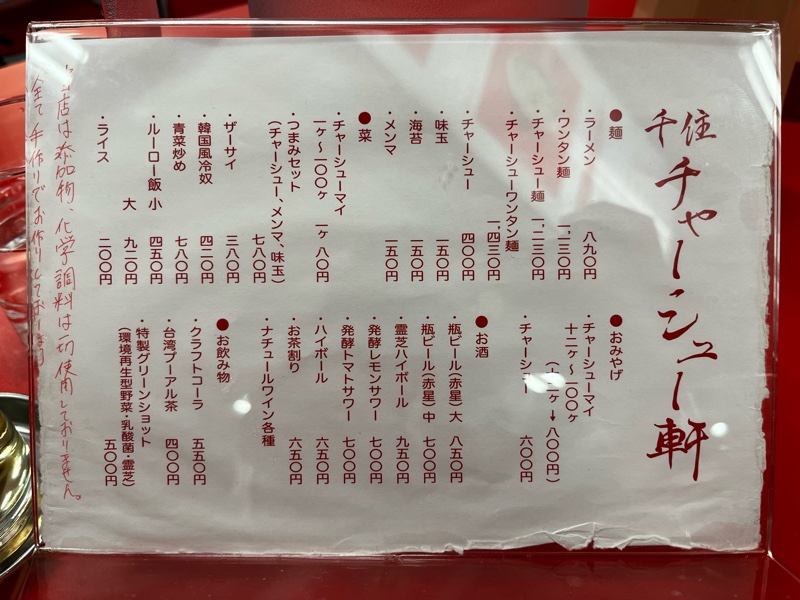 千住チャーシュー軒
●麺
・ラーメン 八九〇円
・ワンタン麺 一、一三〇円
・チャーシュー麺 一、二三〇円
・チャーシューワンタン麺 一、四三〇円
・チャーシュー 四〇〇円
・味玉 一五〇円
・海苔 一五〇円
・メンマ 一五〇円
●菜
・チャーシューマイ
一ヶ〜一〇〇ヶ 一ヶ 八〇円
・つまみセット
(チャーシュー、メンマ、味玉) 七八〇円
・ザーサイ 三八〇円
・韓国風冷奴 四二〇円
・青菜炒め 七八〇円
・ルーロー飯 小 四五〇円
大 九二〇円
・ライス 二〇〇円
●おみやげ
・チャーシューマイ
十二ヶ〜一〇〇ヶ
(十二ヶ→八〇〇円)
・チャーシュー 六〇〇円
●お酒
・瓶ビール(赤星)大 八五〇円
・瓶ビール(赤星)中 七〇〇円
・霊芝ハイボール 九五〇円
・発酵レモンサワー 七〇〇円
・発酵トマトサワー 七〇〇円
・ハイボール 六五〇円
・お茶割り 六五〇円
・ナチュールワイン各種
●お飲み物
・クラフトコーラ 五五〇円
・台湾プーアル茶 四〇〇円
・特製グリーンショット
(環境再生型野菜・乳酸菌・霊芝) 五〇〇円
当店は添加物、化学調料は一切使用しておりません。
全て手作りでお作りしております